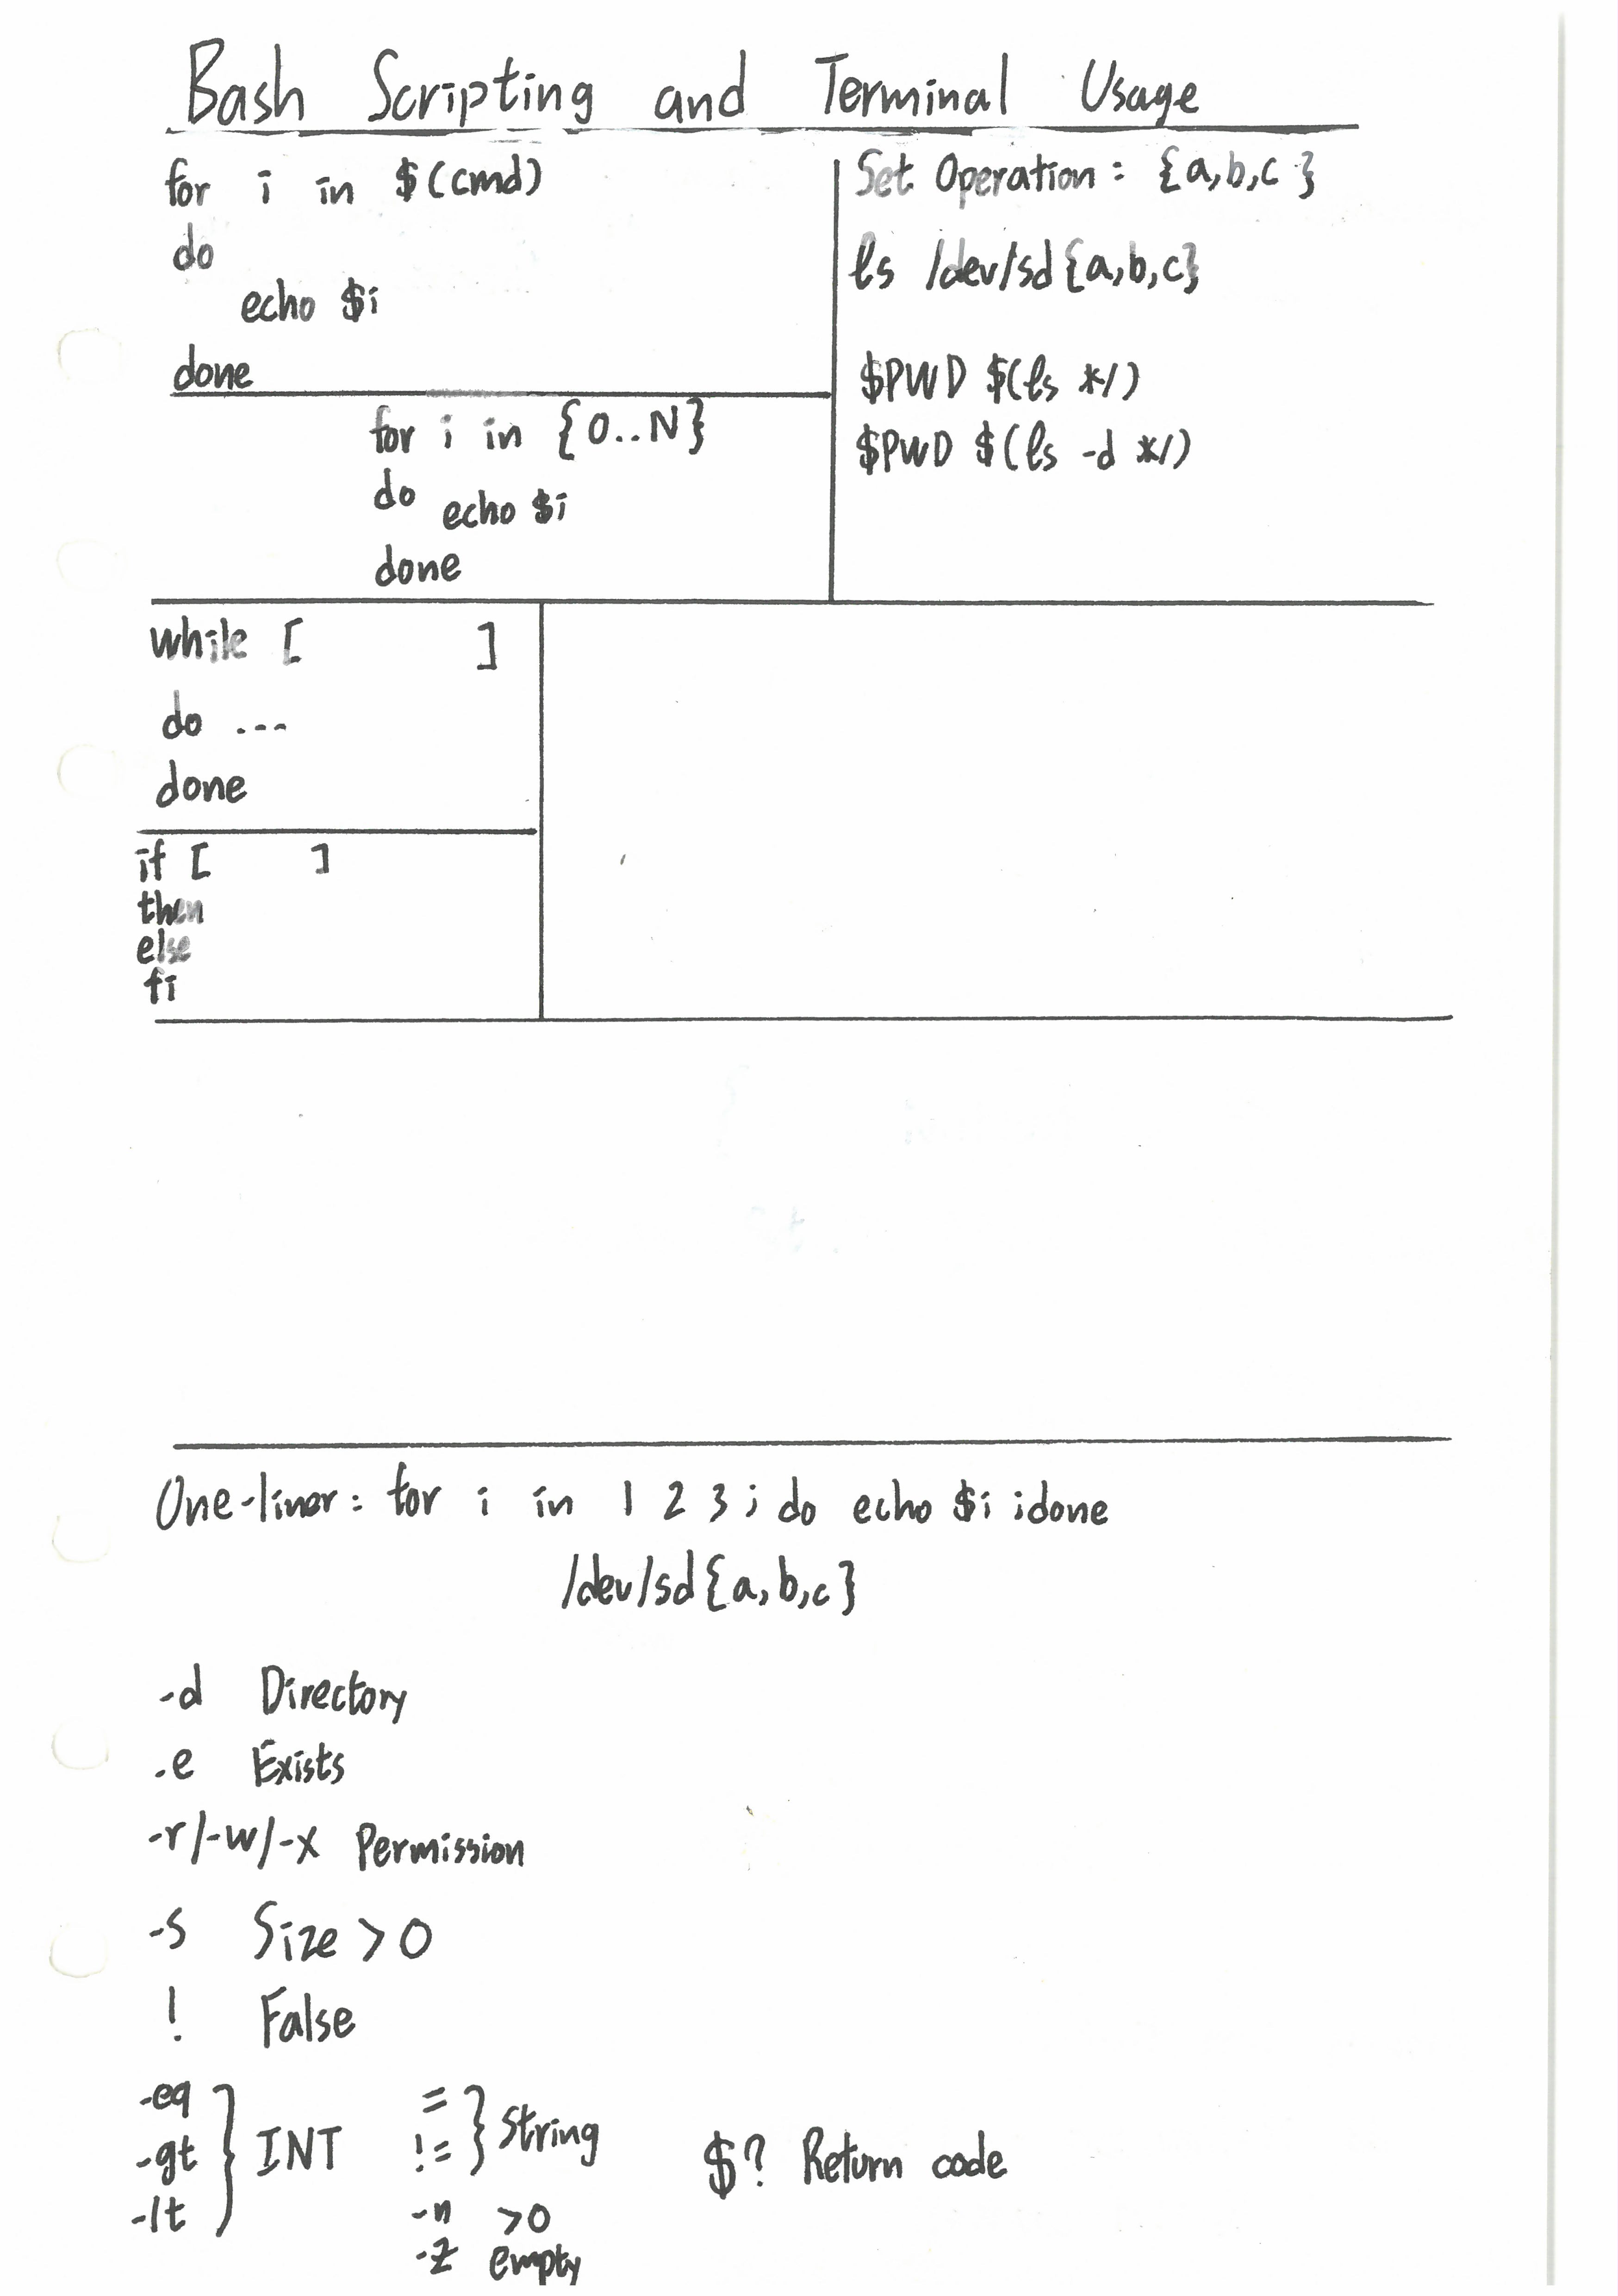 Bash Scripting and Terminal Usage
for i in $(cmd)
do
echo $i
done
for i in {0..N}
do echo $i
done
Set Operation: {a,b,c}
ls /dev/sd{a,b,c}
$PWD $(ls */)
$PWD $(ls -d */)
while [ ]
do ...
done
if [ ]
then
else
fi
One-liner: for i in 1 2 3 ; do echo $i ; done
/dev/sd{a,b,c}
-d Directory
-e Exists
-r/-w/-x Permission
-s Size > 0
! False
-eq
-gt } INT
-lt
=
!= } String
-n >0
-z empty
$? Return code